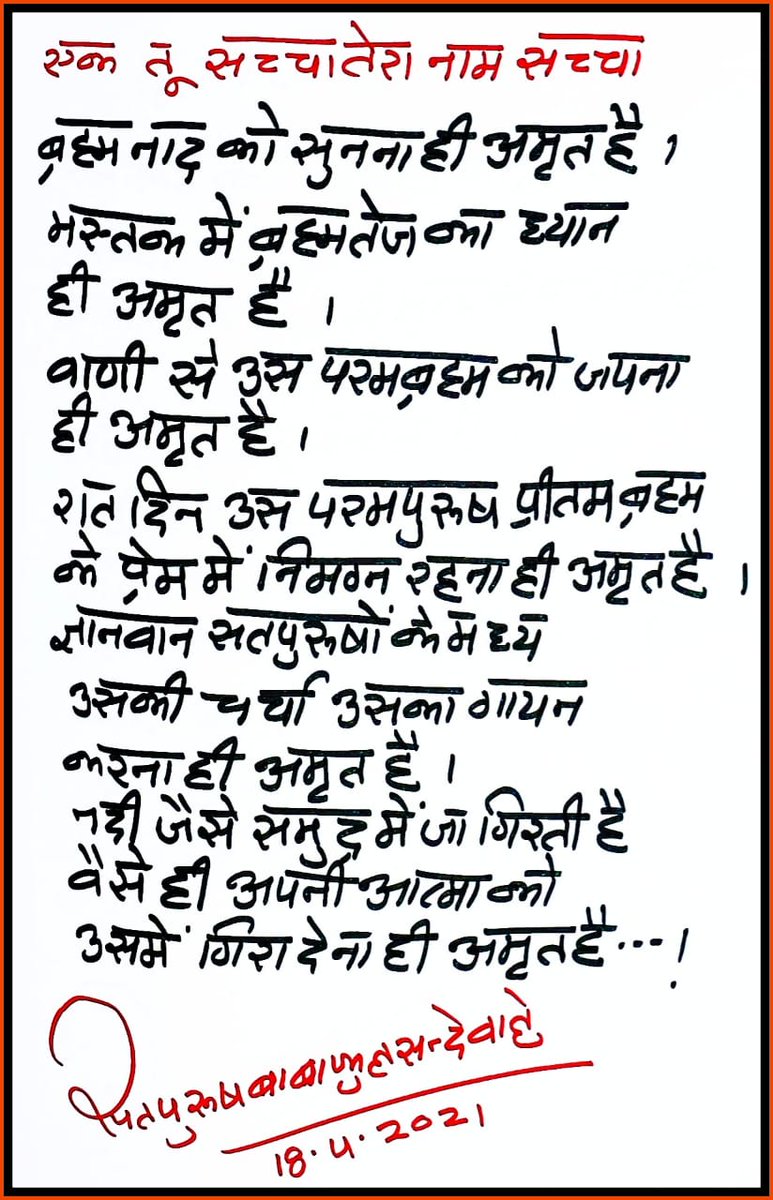 एक तू सच्चा तेरा नाम सच्चा
ब्रह्म नाद को सुनना ही अमृत है ।
मस्तक में ब्रह्मतेज का ध्यान
ही अमृत है ।
वाणी से उस परमब्रह्म को जपना
ही अमृत है ।
रात दिन उस परमपुरूष प्रीतम ब्रह्म
के प्रेम में निमग्न रहना ही अमृत है ।
ज्ञानवान सतपुरूषों के मध्य
उसकी चर्चा उसका गायन
करना ही अमृत है ।
नदी जैसे समुद्र में जा गिरती है
वैसे ही अपनी आत्मा को
उसमें गिरा देना ही अमृत है...!
सतपुरूष बाबा
18.4.2021